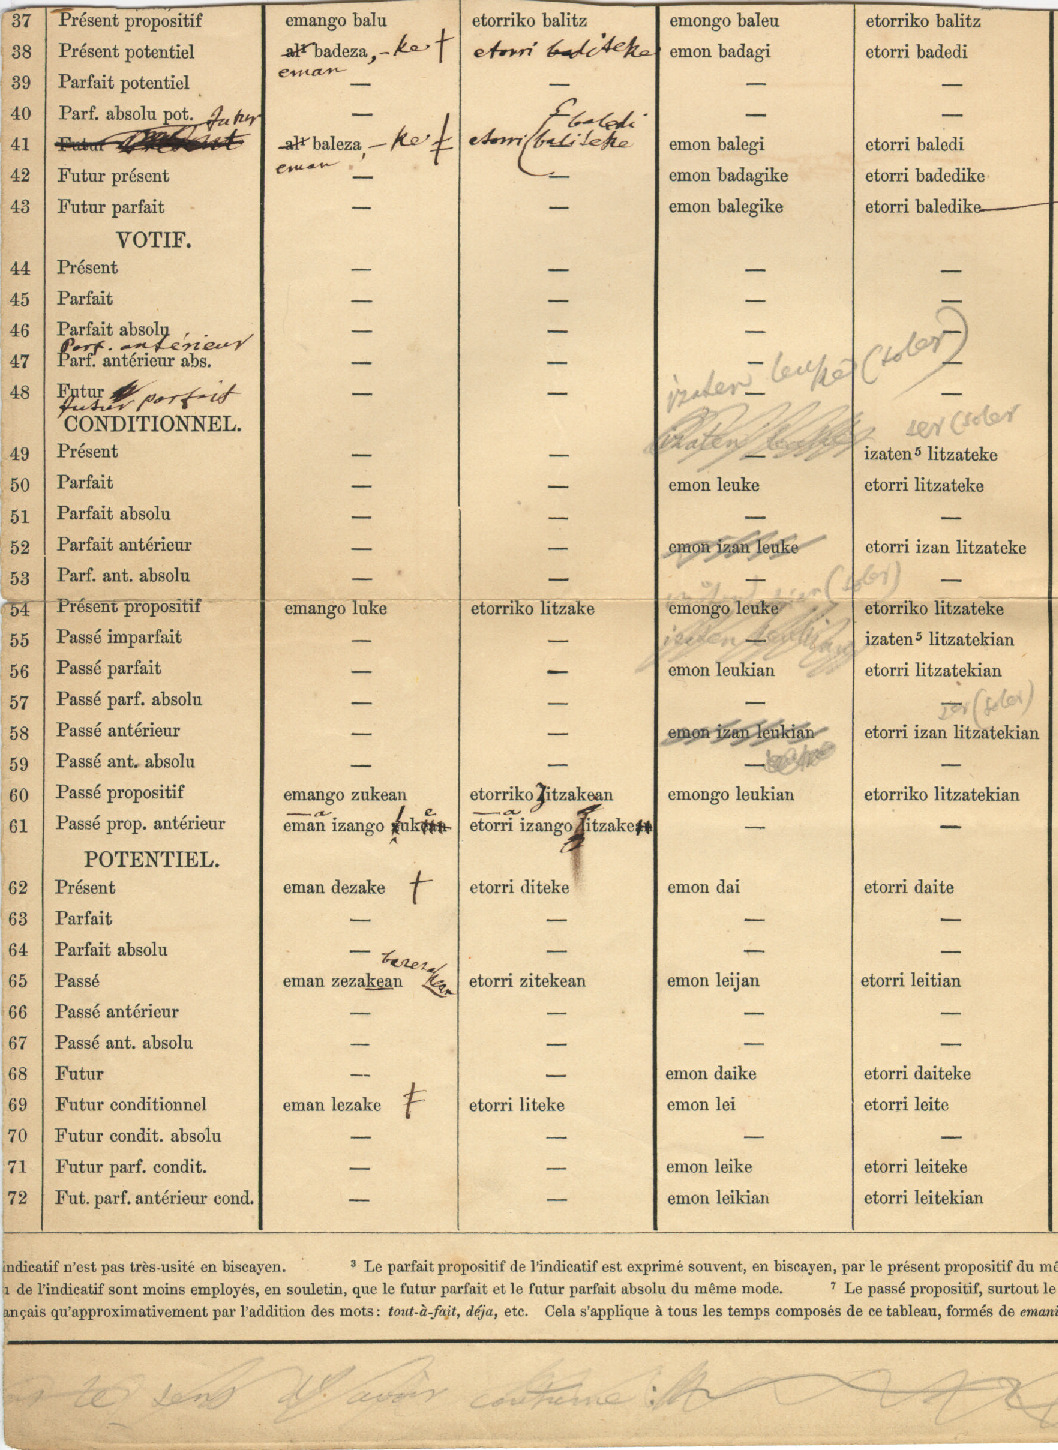 37 Présent propositif emango balu etorriko balitz emongo baleu etorriko balitz
38 Présent potentiel alt badeza, -ke etorri baliteke emon badagi etorri badedi
eman
39 Parfait potentiel — — — —
40 Parf. absolu pot. — — — —
futur baledi
41 Futur alt baleza, -ke etorri baliteke emon balegi etorri baledi
eman
42 Futur présent — — emon badagike etorri badedike
43 Futur parfait — — emon balegike etorri baledike
VOTIF.
44 Présent — — — —
45 Parfait — — — —
46 Parfait absolu — — — —
Parf. antérieur
47 Parf. antérieur abs. — — — —
izaten leuke (soler)
48 Futur — — — —
futur parfait
CONDITIONNEL.
izaten ser (soler
49 Présent — — — izaten⁵ litzateke
50 Parfait — — emon leuke etorri litzateke
51 Parfait absolu — — — —
52 Parfait antérieur — — emon izan leuke etorri izan litzateke
53 Parf. ant. absolu — — — —
(soler)
54 Présent propositif emango luke etorriko litzake emongo leuke etorriko litzateke
55 Passé imparfait — — — izaten⁵ litzatekian
56 Passé parfait — — emon leukian etorri litzatekian
57 Passé parf. absolu — — — —
ser (soler)
58 Passé antérieur — — emon izan leukian etorri izan litzatekian
59 Passé ant. absolu — — — —
60 Passé propositif emango zukean etorriko litzakean emongo leukian etorriko litzatekian
61 Passé prop. antérieur eman izango zukean etorri izango litzakean — —
POTENTIEL.
62 Présent eman dezake etorri diteke emon dai etorri daite
63 Parfait — — — —
64 Parfait absolu — — — —
65 Passé eman zezakean etorri zitekean emon leijan etorri leitian
66 Passé antérieur — — — —
67 Passé ant. absolu — — — —
68 Futur — — emon daike etorri daiteke
69 Futur conditionnel eman lezake etorri liteke emon lei etorri leite
70 Futur condit. absolu — — — —
71 Futur parf. condit. — — emon leike etorri leiteke
72 Fut. parf. antérieur cond. — — emon leikian etorri leitekian
indicatif n'est pas très-usité en biscayen. ³ Le parfait propositif de l'indicatif est exprimé souvent, en biscayen, par le présent propositif du mê
de l'indicatif sont moins employés, en souletin, que le futur parfait et le futur parfait absolu du même mode. ⁷ Le passé propositif, surtout le
ançais qu'approximativement par l'addition des mots: tout-à-fait, déja, etc. Cela s'applique à tous les temps composés de ce tableau, formés de emani
le sens d'avoir coutume